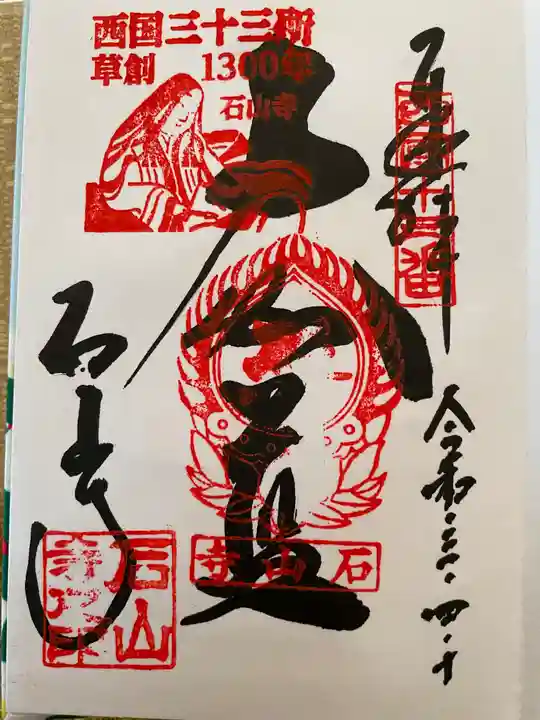 西国三十三所
草創 1300年
石山寺
奉拝
西国十三番
令和・三・四・十
大伽藍
石山寺
石山寺
石山寺之印